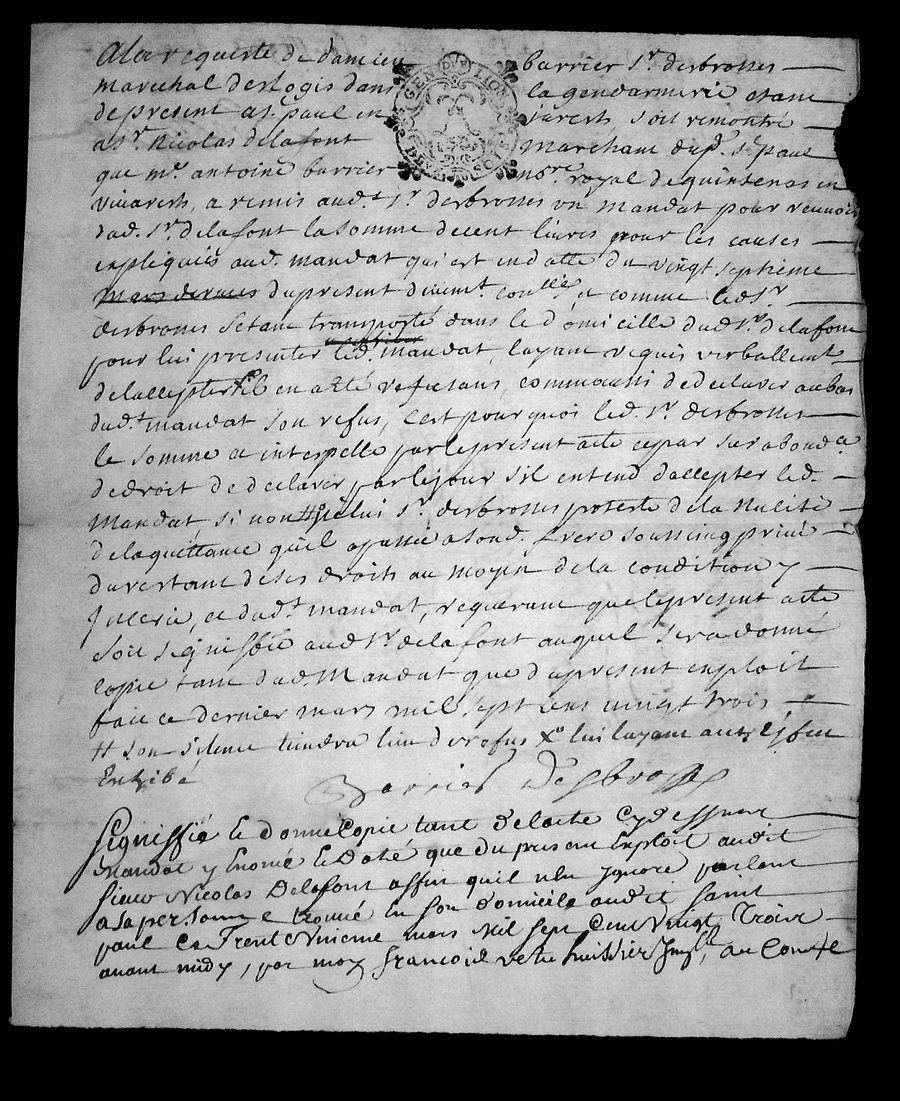 A la requeste de damien barrier sr. desbrosses
marechal des logis dans la gendarmerie estant
de present a st. paul en vivarets soit remontré
a sr. Nicolas delafont marchant dud. st. paul
que mr. antoine barrier nore. royal de quintenas en
vivarets, a remis aud.t sr. desbrosses un mandat pour recevoir
dud. sr. delafont la somme de cent livres pour les causes
expliquées aud. mandat qui est en datte du vingt septieme
mars dernier du present duement coollé, et comme led. sr.
desbrosses s'etant transporté dans le domicille dud. sr. delafont
pour lui presenter led. mandat, layant requis verballemt
de laccepter Xo il en a eté refusant, comme aussi de declarer au bas
dud.t mandat son refus, cest pourquoi led. sr. desbrosses
le somme et interpelle par le present acte et par surabond.ce
de droit de declarer par le jour s'il entend daccepter led.
mandat, si non # ledit sr. desbrosses proteste de la nulité
de la quittance quil a passée a son d. frere soussing privé
du restant de ses droits au moyen de la condition y
inserée, et dud.t mandat, requerant que le present acte
soit signiffié aud. sr. delafont auquel sera donné
copie tant dud. mandat que du present exploit
fait ce dernier mars mil sept cens vingt trois
# son silence tiendra lieu de refus Xo lui layant
Exhibé
Barrier Desbrosses
Signiffié et donné copie tant de lacte cy dessus
mandat y enoncé et daté que du present Exploit audit
sieur Nicolas Delafont affin quil nen ignore parlant
a sa personne trouvé en son domicile audit saint
paul ce Trente unieme mars mil sept cent vingt Trois
avant midy, par moy francois huissier au Comté
GEN DE LION